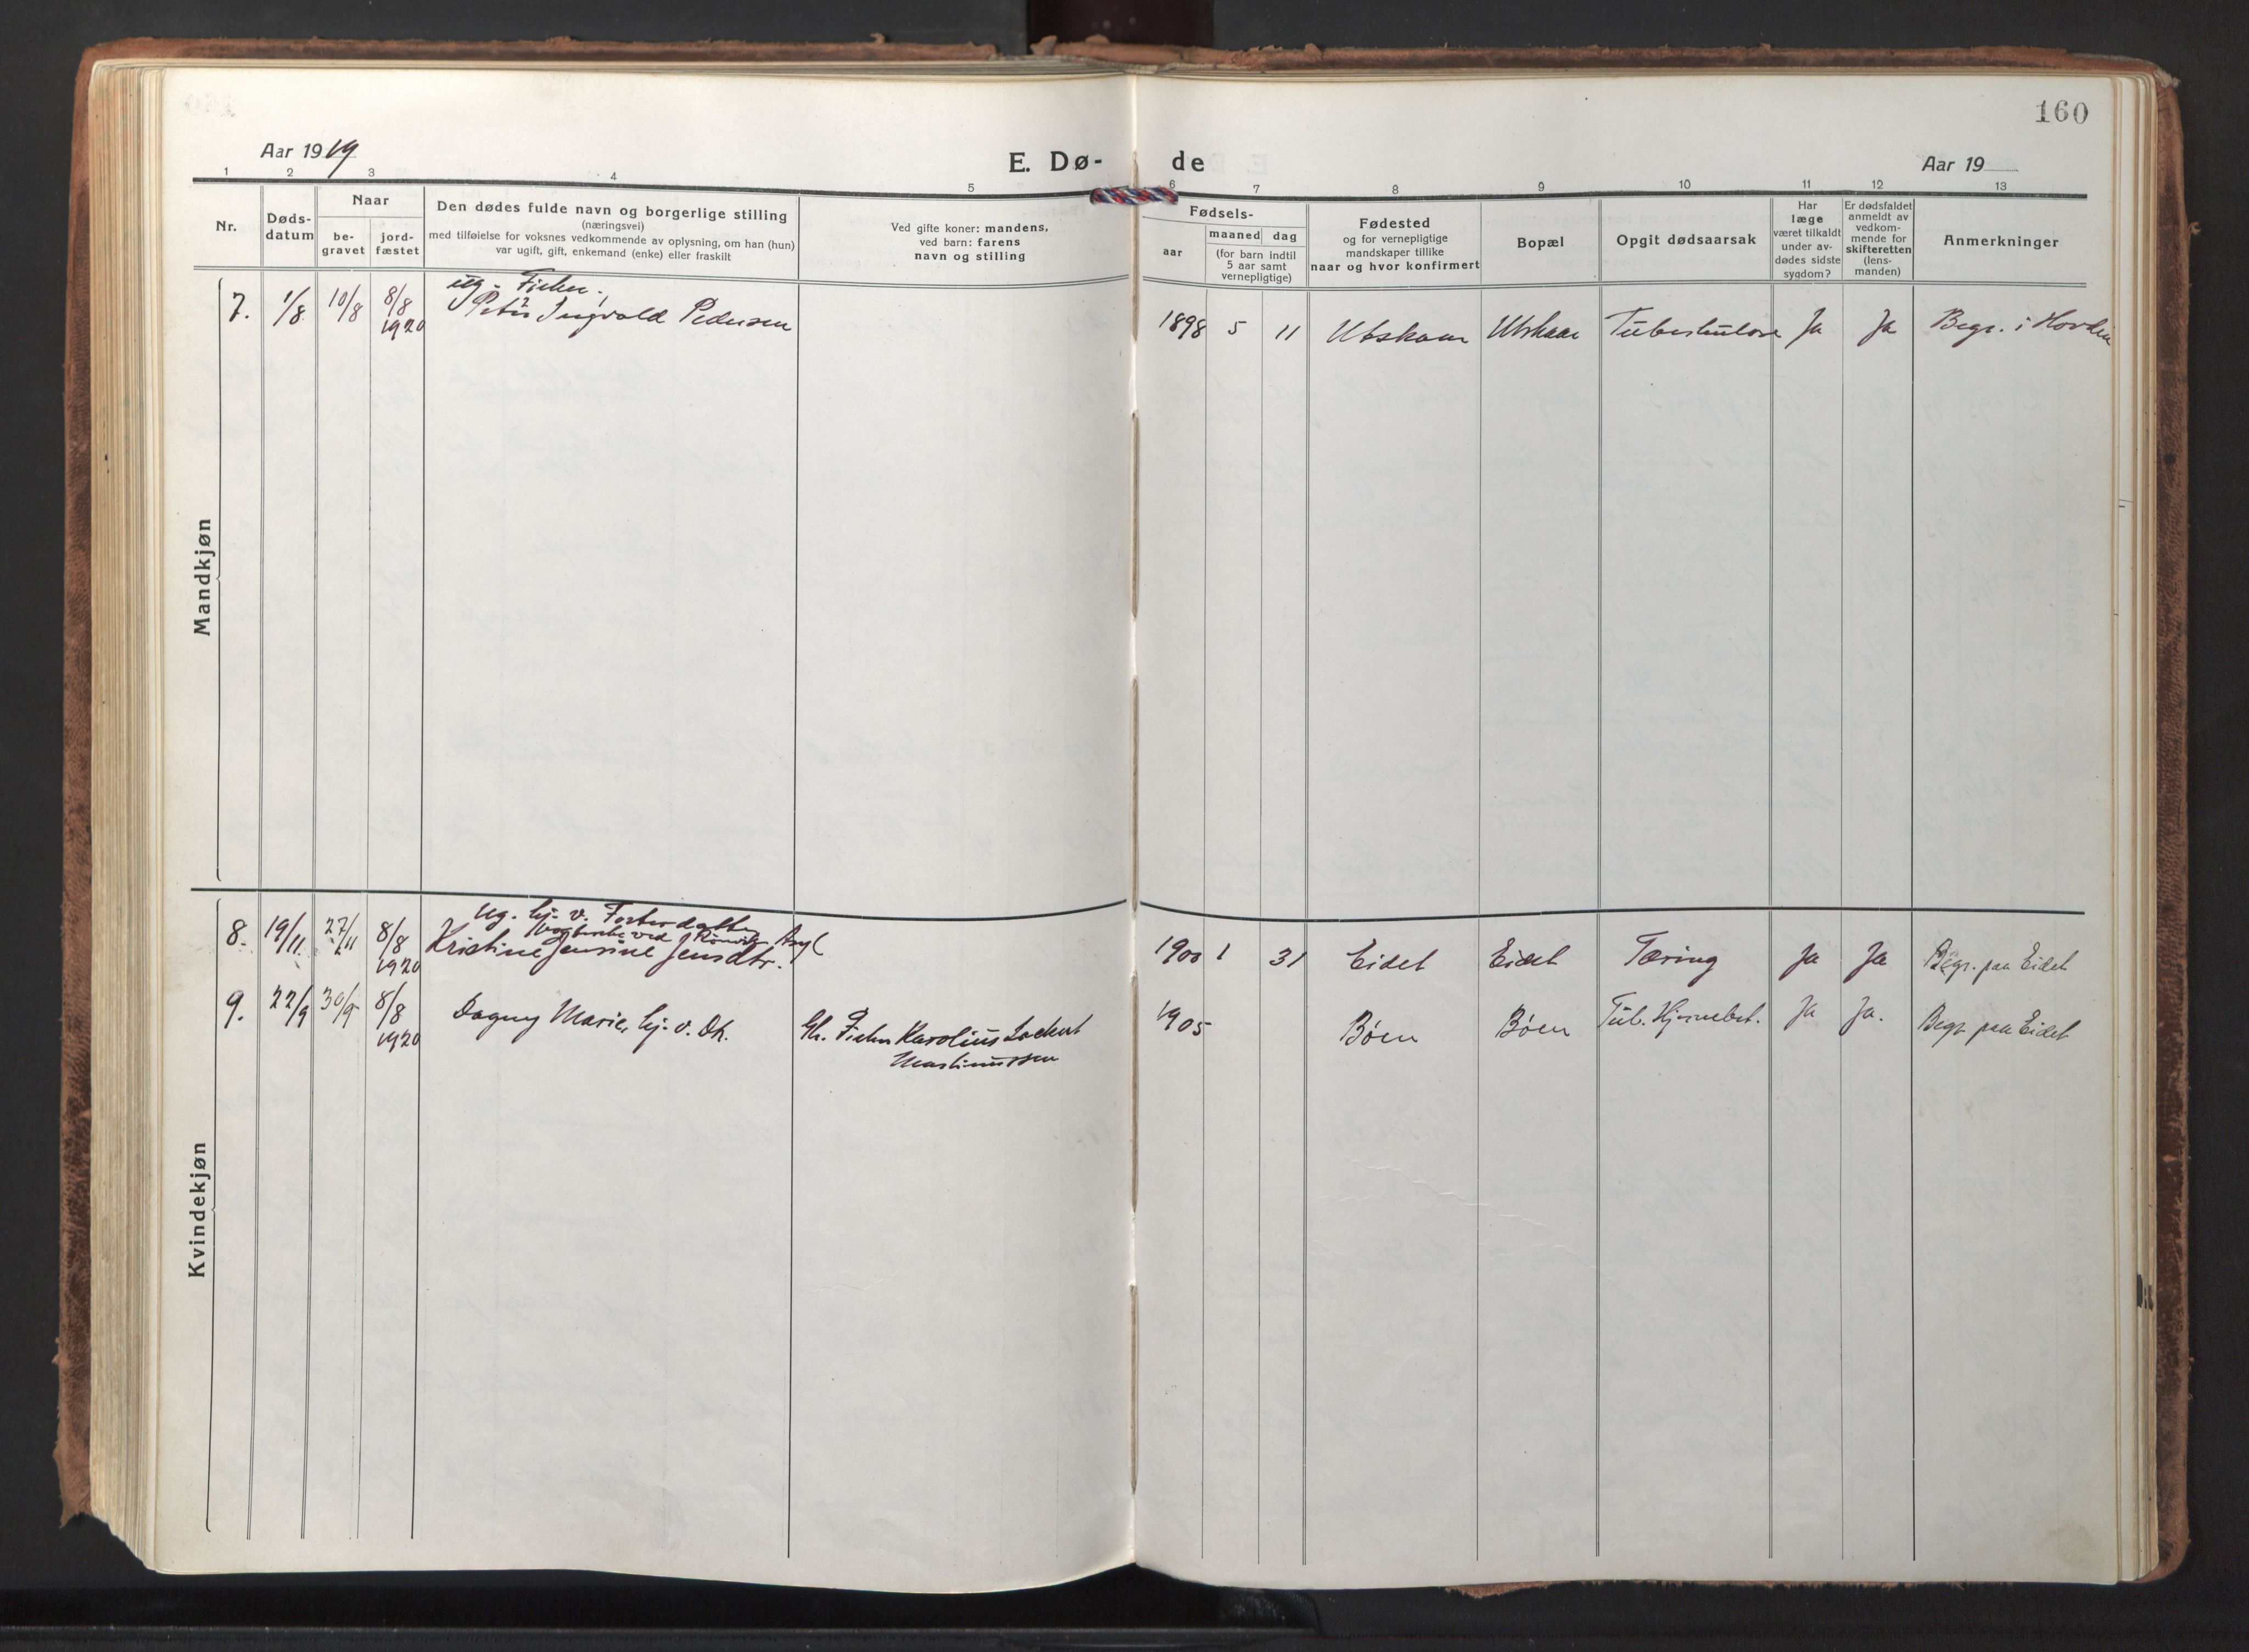 160
Aar 1919
E. Dø- de
Aar 19
1 2 3 4 5 6 7 8 9 10 11 12 13
Nr.
Døds-
datum
Naar
be-
gravet
jord-
fæstet
Den dødes fulde navn og borgerlige stilling
(næringsvei)
med tilføielse for voksnes vedkommende av oplysning, om han (hun)
var ugift, gift, enkemand (enke) eller fraskilt
Ved gifte koner: mandens,
ved barn: farens
navn og stilling
Fødsels-
aar
maaned dag
(for barn indtil
5 aar samt
vernepligtige)
Fødested
og for vernepligtige
mandskaper tillike
naar og hvor konfirmert
Bopæl
Opgit dødsaarsak
Har
læge
været tilkaldt
under av-
dødes sidste
sygdom?
Er dødsfaldet
anmeldt av
vedkom-
mende for
skifteretten
(lens-
manden)
Anmerkninger
Mandkjøn
ug. Fisker.
7. 1/8 10/8 8/8 Peter Ingvald Pedersen 1898 5 11 Utskaar Utskaar Tuberkulose Ja Ja Begr. i Hovden
1920
Kvindekjøn
ug. hj. v. Fosterdatter
ved Rønvik Asyl
8. 19/11 27/11 8/8 Kristine Jensine Jensdtr. 1900 1 31 Eidet Eidet Tæring Ja Ja Begr. paa Eidet
1920
9. 22/9 30/9 8/8 Dagny Marie, hj. v. Dk. Gk. Fisker Karolius Lockert 1905 Bøen Bøen Tub. Hjernebet. Ja Ja. Begr. paa Eidet
1920 Martinussen